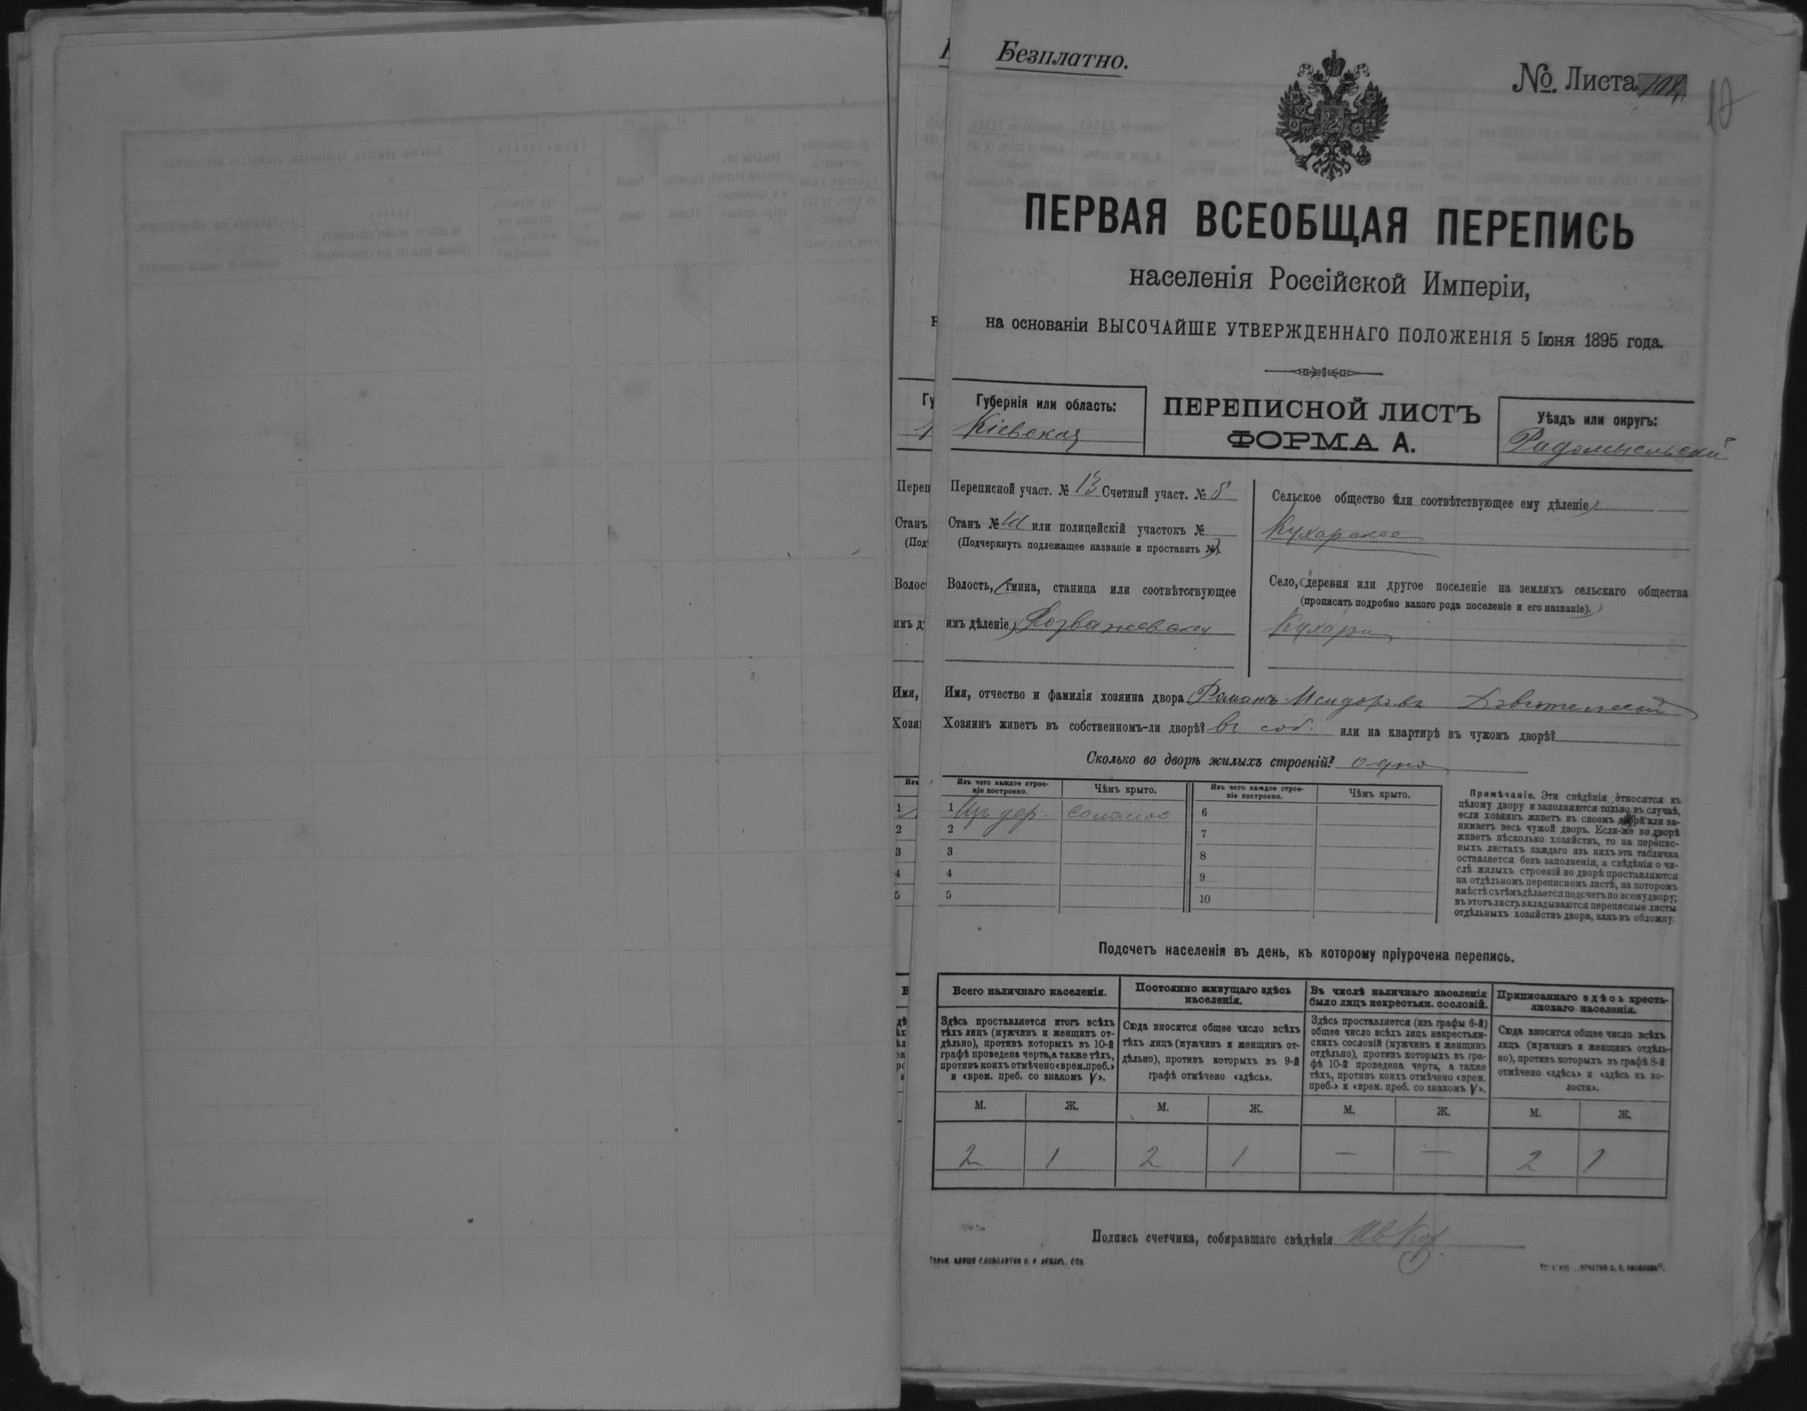 Безплатно.
№ Листа
ПЕРВАЯ ВСЕОБЩАЯ ПЕРЕПИСЬ
населенія Россійской Имперіи,
на основаніи ВЫСОЧАЙШЕ УТВЕРЖДЕННАГО ПОЛОЖЕНІЯ 5 Іюня 1895 года.
Губернія или область:
Кіевская
ПЕРЕПИСНОЙ ЛИСТЪ
ФОРМА А.
Уѣздъ или округъ:
Радомысльскій
Переписной участ. № 13 Счетный участ. № 8
Станъ № III или полицейскій участокъ №
(Подчеркнуть подлежащее названіе и проставить №).
Волость, гмина, станица или соотвѣтствующее
имъ дѣленіе) Розважевская
Сельское общество или соотвѣтствующее ему дѣленіе)
Кухарское
Село, деревня или другое поселеніе на земляхъ сельскаго общества
(прописать подробно какого рода поселеніе и его названіе).
Кухари
Имя, отчество и фамилія хозяина двора Романъ Исидоровъ
Хозяинъ живетъ въ собственномъ-ли дворѣ? въ соб. или на квартирѣ въ чужомъ дворѣ?
Сколько во дворѣ жилыхъ строеній? одно
Изъ чего каждое строе-
ніе построено.
Чѣмъ крыто.
Изъ чего каждое строе-
ніе построено.
Чѣмъ крыто.
1 Изъ дер. соломою
2
3
4
5
6
7
8
9
10
Примѣчаніе. Эти свѣдѣнія относятся къ
цѣлому двору и заполняются только въ случаѣ,
если хозяинъ живетъ въ своемъ дворѣ или за-
нимаетъ весь чужой дворъ. Если-же во дворѣ
живетъ нѣсколько хозяйствъ, то на перепис-
ныхъ листахъ каждаго изъ нихъ эта табличка
оставляется безъ заполненія, а свѣдѣнія о чи-
слѣ жилыхъ строеній во дворѣ проставляются
на отдѣльномъ переписномъ листѣ, на которомъ
вмѣстѣ съ тѣмъ дѣлается подсчетъ по всему двору;
въ этотъ листъ вкладываются переписные листы
отдѣльныхъ хозяйствъ двора, какъ въ обложку.
Подсчетъ населенія въ день, къ которому пріурочена перепись.
Всего наличнаго населенія.
Здѣсь проставляется итогъ всѣхъ
тѣхъ лицъ (мужчинъ и женщинъ от-
дѣльно), противъ которыхъ въ 10-й
графѣ проведена черта, а также тѣхъ,
противъ коихъ отмѣчено «врем. преб.»
и «врем. преб. со знакомъ V».
Постоянно живущаго здѣсь
населенія.
Сюда вносится общее число всѣхъ
тѣхъ лицъ (мужчинъ и женщинъ от-
дѣльно), противъ которыхъ въ 9-й
графѣ отмѣчено «здѣсь».
Въ числѣ наличнаго населенія
было лицъ некрестьян. сословій.
Здѣсь проставляется (изъ графы 6-й)
общее число всѣхъ лицъ некрестьян-
скихъ сословій (мужчинъ и женщинъ
отдѣльно), противъ которыхъ въ гра-
фѣ 10-й проведена черта, а также
тѣхъ, противъ коихъ отмѣчено «врем.
преб.» и «врем. преб. со знакомъ V».
Приписаннаго здѣсь кресть-
янскаго населенія.
Сюда вносится общее число всѣхъ
лицъ (мужчинъ и женщинъ отдѣль-
но), противъ которыхъ въ графѣ 8-й
отмѣчено «здѣсь» и «здѣсь къ во-
лости».
М. Ж. М. Ж. М. Ж. М. Ж.
2 1 2 1 — — 2 1
Подпись счетчика, собиравшаго свѣдѣнія